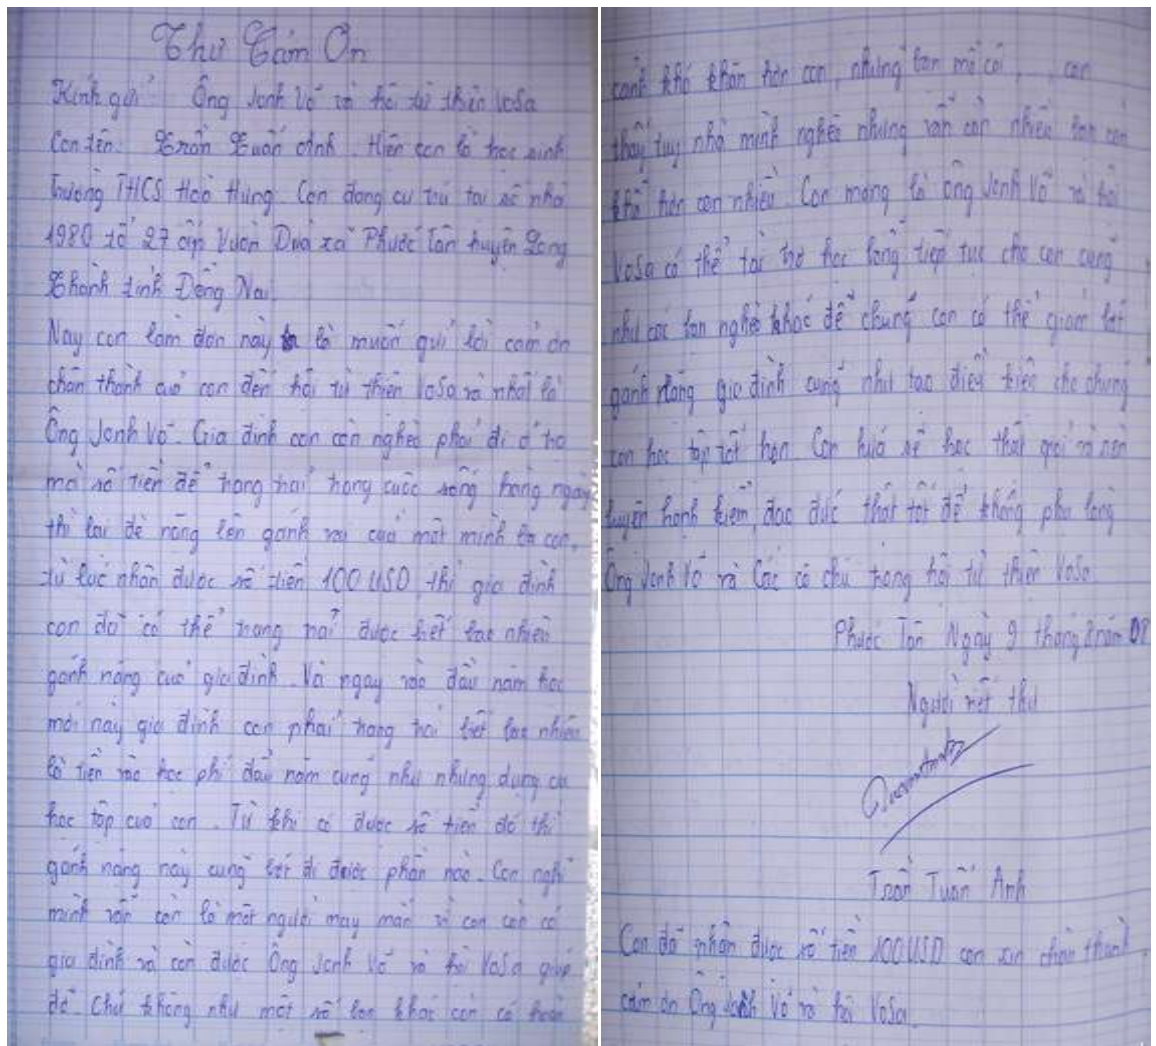 Thư Cám Ơn
Kính gửi: Ông Jonh Võ và hội từ thiện VoSa
Con tên: Trần Tuấn Anh. Hiện con là học sinh
trường THCS Hoà Hưng. Con đang cư trú tại số nhà
1980 tổ 27 ấp Vườn Dừa xã Phước Tân huyện Long
Thành tỉnh Đồng Nai.
Nay con làm đơn này là muốn gửi lời cảm ơn
chân thành của con đến hội từ thiện VoSa và nhất là
Ông Jonh Võ. Gia đình con còn nghèo phải đi ở trọ
mà số tiền để trang trải trong cuộc sống hằng ngày
thì lại đè nặng lên gánh vai của một mình ba con.
từ lúc nhận được số tiền 100 USD, thì gia đình
con đã có thể trang trải được biết bao nhiêu
gánh nặng của gia đình. Và ngay vào đầu năm học
mới này gia đình con phải trang trải biết bao nhiêu
là tiền vào học phí đầu năm cũng như những dụng cụ
học tập của con. Từ khi có được số tiền đó thì
gánh nặng này cũng bớt đi được phần nào. Con nghĩ
mình vẫn còn là một người may mắn vì con còn có
gia đình và còn được Ông Jonh Võ và hội VoSa giúp
đỡ. Chứ không như một số bạn khác còn có hoàn
cảnh khó khăn hơn con, những bạn mồ côi, , con
thấy tuy nhà mình nghèo nhưng vẫn còn nhiều bạn còn
khổ hơn con nhiều. Con mong là ông Jonh Võ và hội
VoSa có thể tài trợ học bổng tiếp tục cho con cũng
như các bạn nghèo khác để chúng con có thể giảm bớt
gánh nặng gia đình cũng như tạo điều kiện cho chúng
con học tập tốt hơn. Con hứa sẽ học thật giỏi và rèn
luyện hạnh kiểm, đạo đức thật tốt để không phụ lòng
Ông Jonh Võ và Các cô chú trong hội từ thiện VoSa.
Phước Tân Ngày 9 tháng 2 năm 08
Người viết thư
Trần Tuấn Anh
Con đã nhận được số tiền 100 USD con xin chân thành
cảm ơn Ông Jonh Võ và hội VoSa.